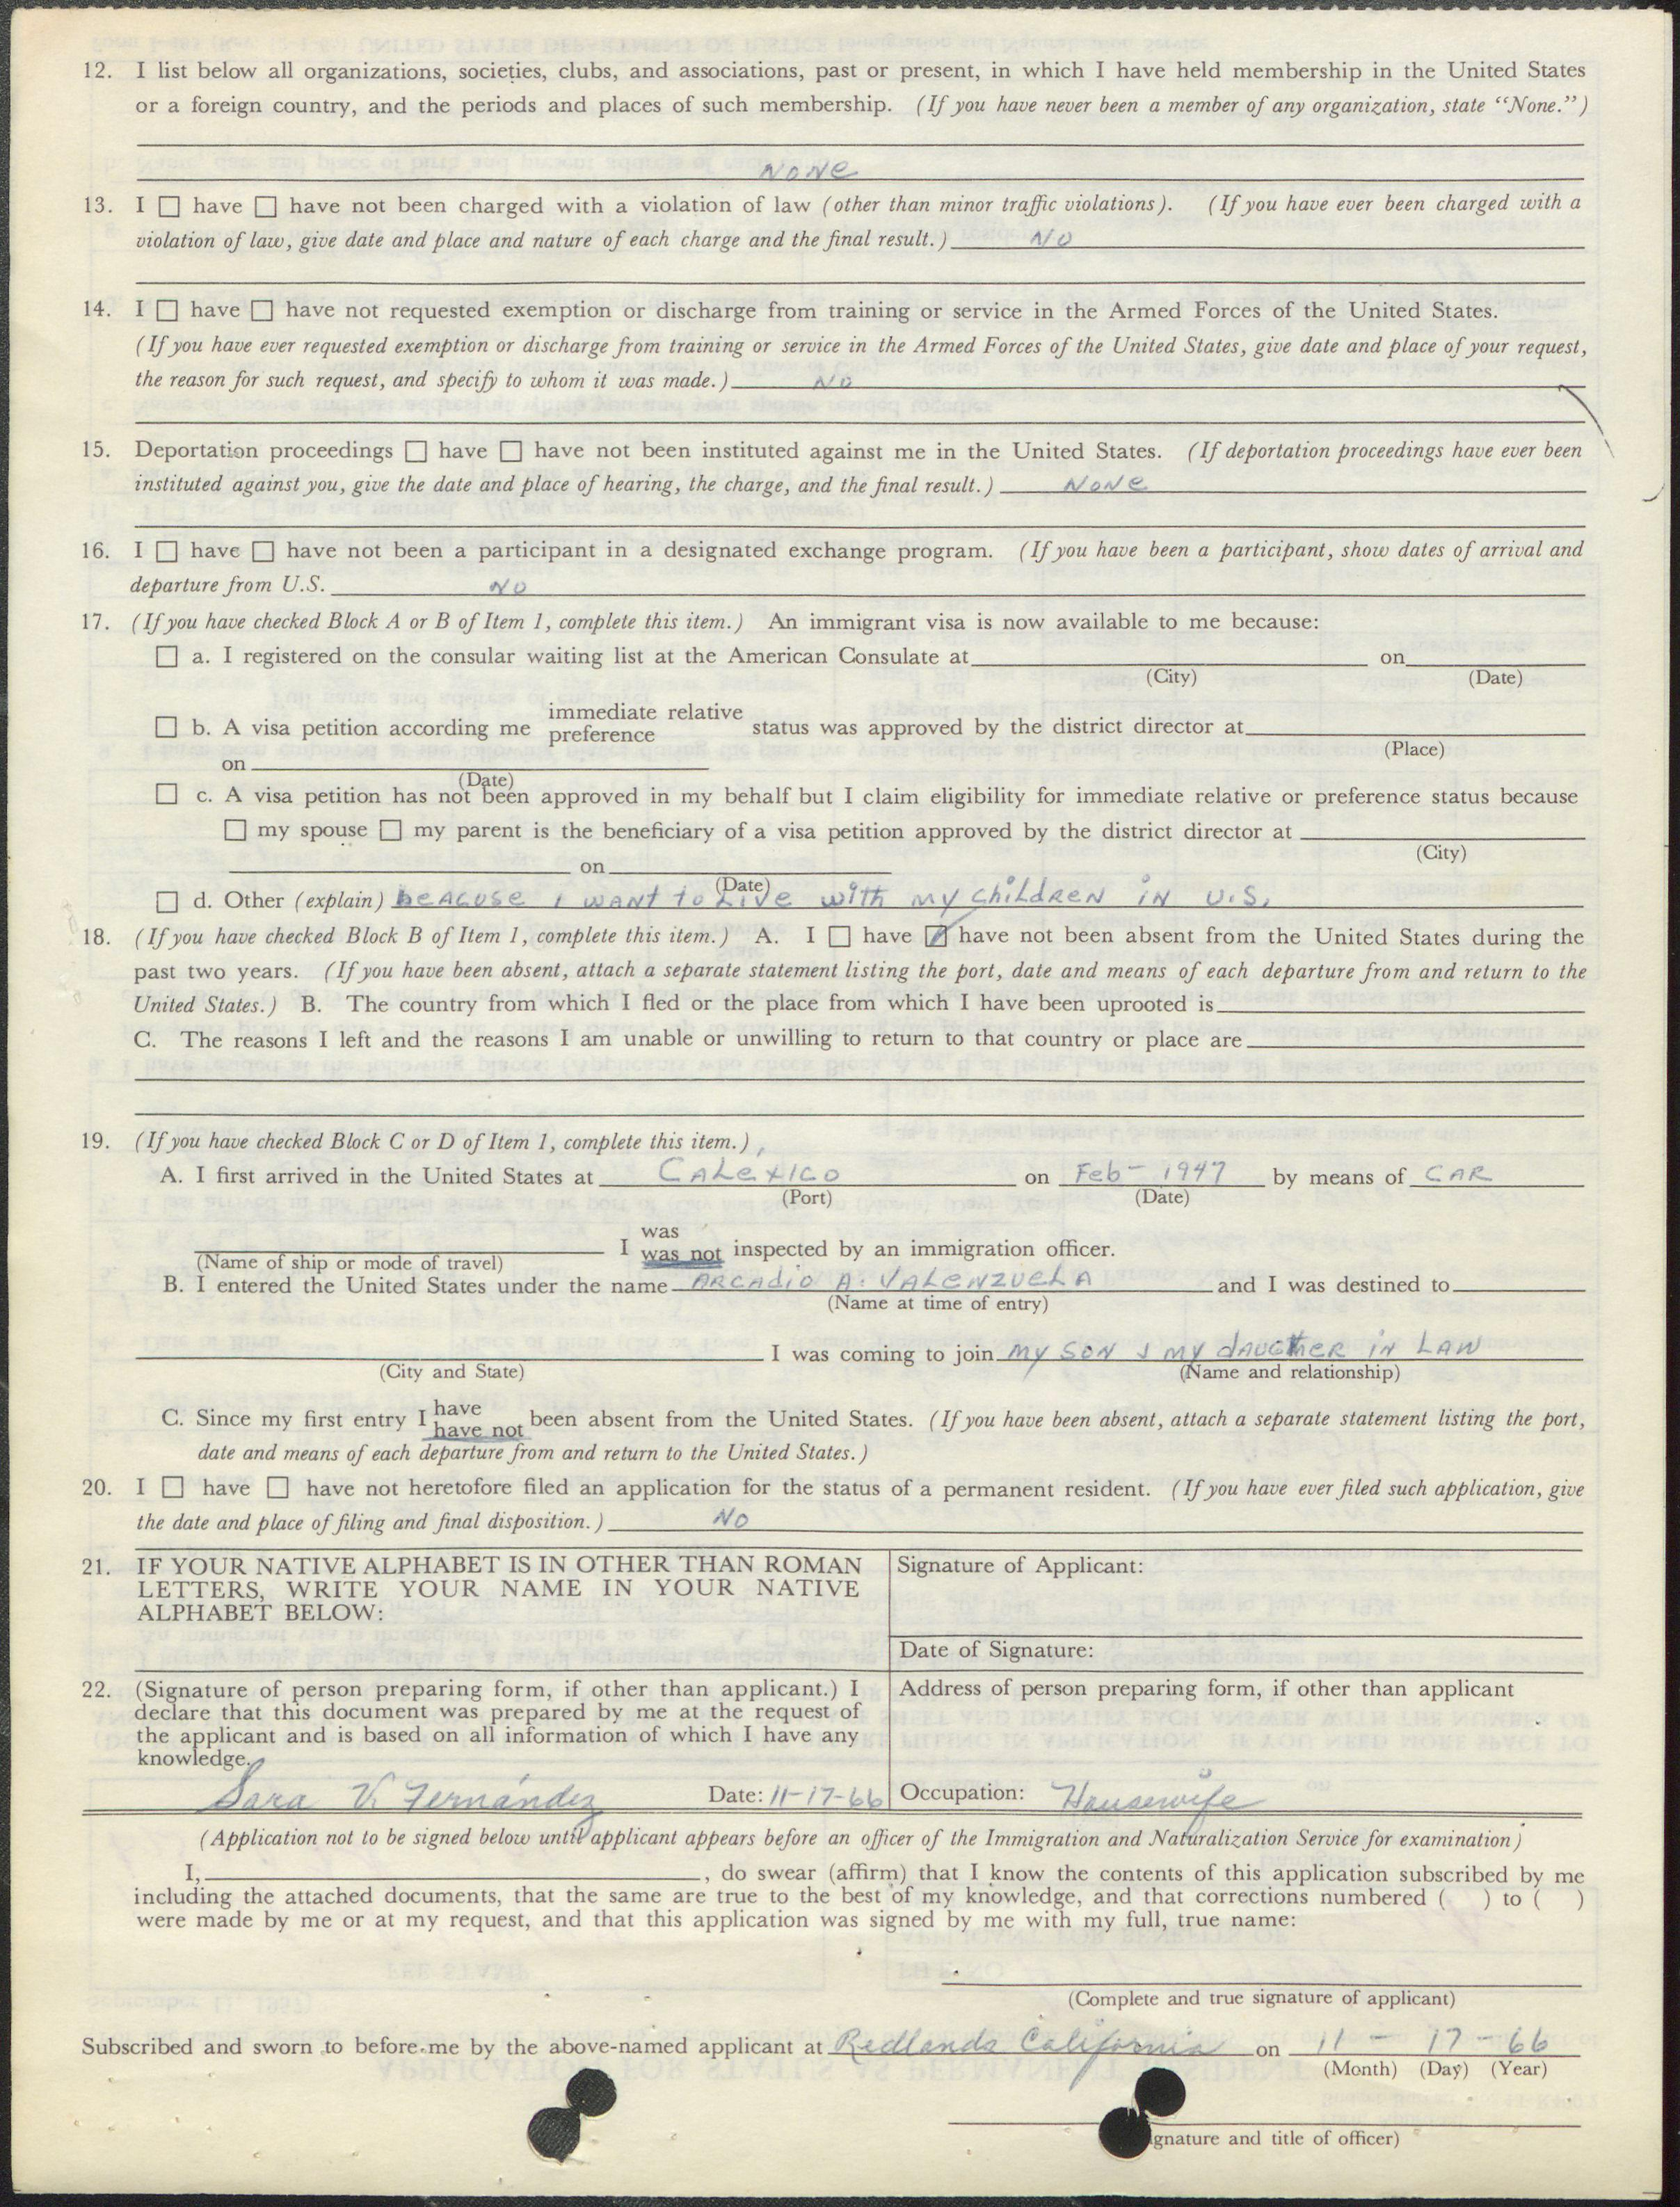 12. I list below all organizations, societies, clubs, and associations, past or present, in which I have held membership in the United States
or a foreign country, and the periods and places of such membership. (If you have never been a member of any organization, state “None.”)
NONe
13. I ☐ have ☐ have not been charged with a violation of law (other than minor traffic violations). (If you have ever been charged with a
violation of law, give date and place and nature of each charge and the final result.) NO
14. I ☐ have ☐ have not requested exemption or discharge from training or service in the Armed Forces of the United States.
(If you have ever requested exemption or discharge from training or service in the Armed Forces of the United States, give date and place of your request,
the reason for such request, and specify to whom it was made.) NO
15. Deportation proceedings ☐ have ☐ have not been instituted against me in the United States. (If deportation proceedings have ever been
instituted against you, give the date and place of hearing, the charge, and the final result.) NONe
16. I ☐ have ☐ have not been a participant in a designated exchange program. (If you have been a participant, show dates of arrival and
departure from U.S. NO
17. (If you have checked Block A or B of Item 1, complete this item.) An immigrant visa is now available to me because:
☐ a. I registered on the consular waiting list at the American Consulate at on
(City) (Date)
☐ b. A visa petition according me immediate relative preference status was approved by the district director at
(Place)
on
(Date)
☐ c. A visa petition has not been approved in my behalf but I claim eligibility for immediate relative or preference status because
☐ my spouse ☐ my parent is the beneficiary of a visa petition approved by the district director at
(City)
on
(Date)
☐ d. Other (explain) beACUSe I WANT to Live with my ChiLdReN iN U.S.
18. (If you have checked Block B of Item 1, complete this item.) A. I ☐ have ☑ have not been absent from the United States during the
past two years. (If you have been absent, attach a separate statement listing the port, date and means of each departure from and return to the
United States.) B. The country from which I fled or the place from which I have been uprooted is
C. The reasons I left and the reasons I am unable or unwilling to return to that country or place are
19. (If you have checked Block C or D of Item 1, complete this item.)
A. I first arrived in the United States at CALeXICO on Feb - 1947 by means of CAR
(Port) (Date)
I was was not inspected by an immigration officer.
(Name of ship or mode of travel)
B. I entered the United States under the name ARCAdio A. VALeNZUeLA and I was destined to
(Name at time of entry)
I was coming to join my SON & my dAUGHteR iN LAW
(City and State) (Name and relationship)
C. Since my first entry I have have not been absent from the United States. (If you have been absent, attach a separate statement listing the port,
date and means of each departure from and return to the United States.)
20. I ☐ have ☐ have not heretofore filed an application for the status of a permanent resident. (If you have ever filed such application, give
the date and place of filing and final disposition.) NO
21. IF YOUR NATIVE ALPHABET IS IN OTHER THAN ROMAN
LETTERS, WRITE YOUR NAME IN YOUR NATIVE
ALPHABET BELOW:
Signature of Applicant:
Date of Signature:
22. (Signature of person preparing form, if other than applicant.) I
declare that this document was prepared by me at the request of
the applicant and is based on all information of which I have any
knowledge.
Sara V. Fernández Date: 11-17-66
Address of person preparing form, if other than applicant
Occupation: Housewife
(Application not to be signed below until applicant appears before an officer of the Immigration and Naturalization Service for examination)
I, , do swear (affirm) that I know the contents of this application subscribed by me
including the attached documents, that the same are true to the best of my knowledge, and that corrections numbered ( ) to ( )
were made by me or at my request, and that this application was signed by me with my full, true name:
(Complete and true signature of applicant)
Subscribed and sworn to before me by the above-named applicant at Redlands California on 11 - 17 - 66
(Month) (Day) (Year)
ignature and title of officer)